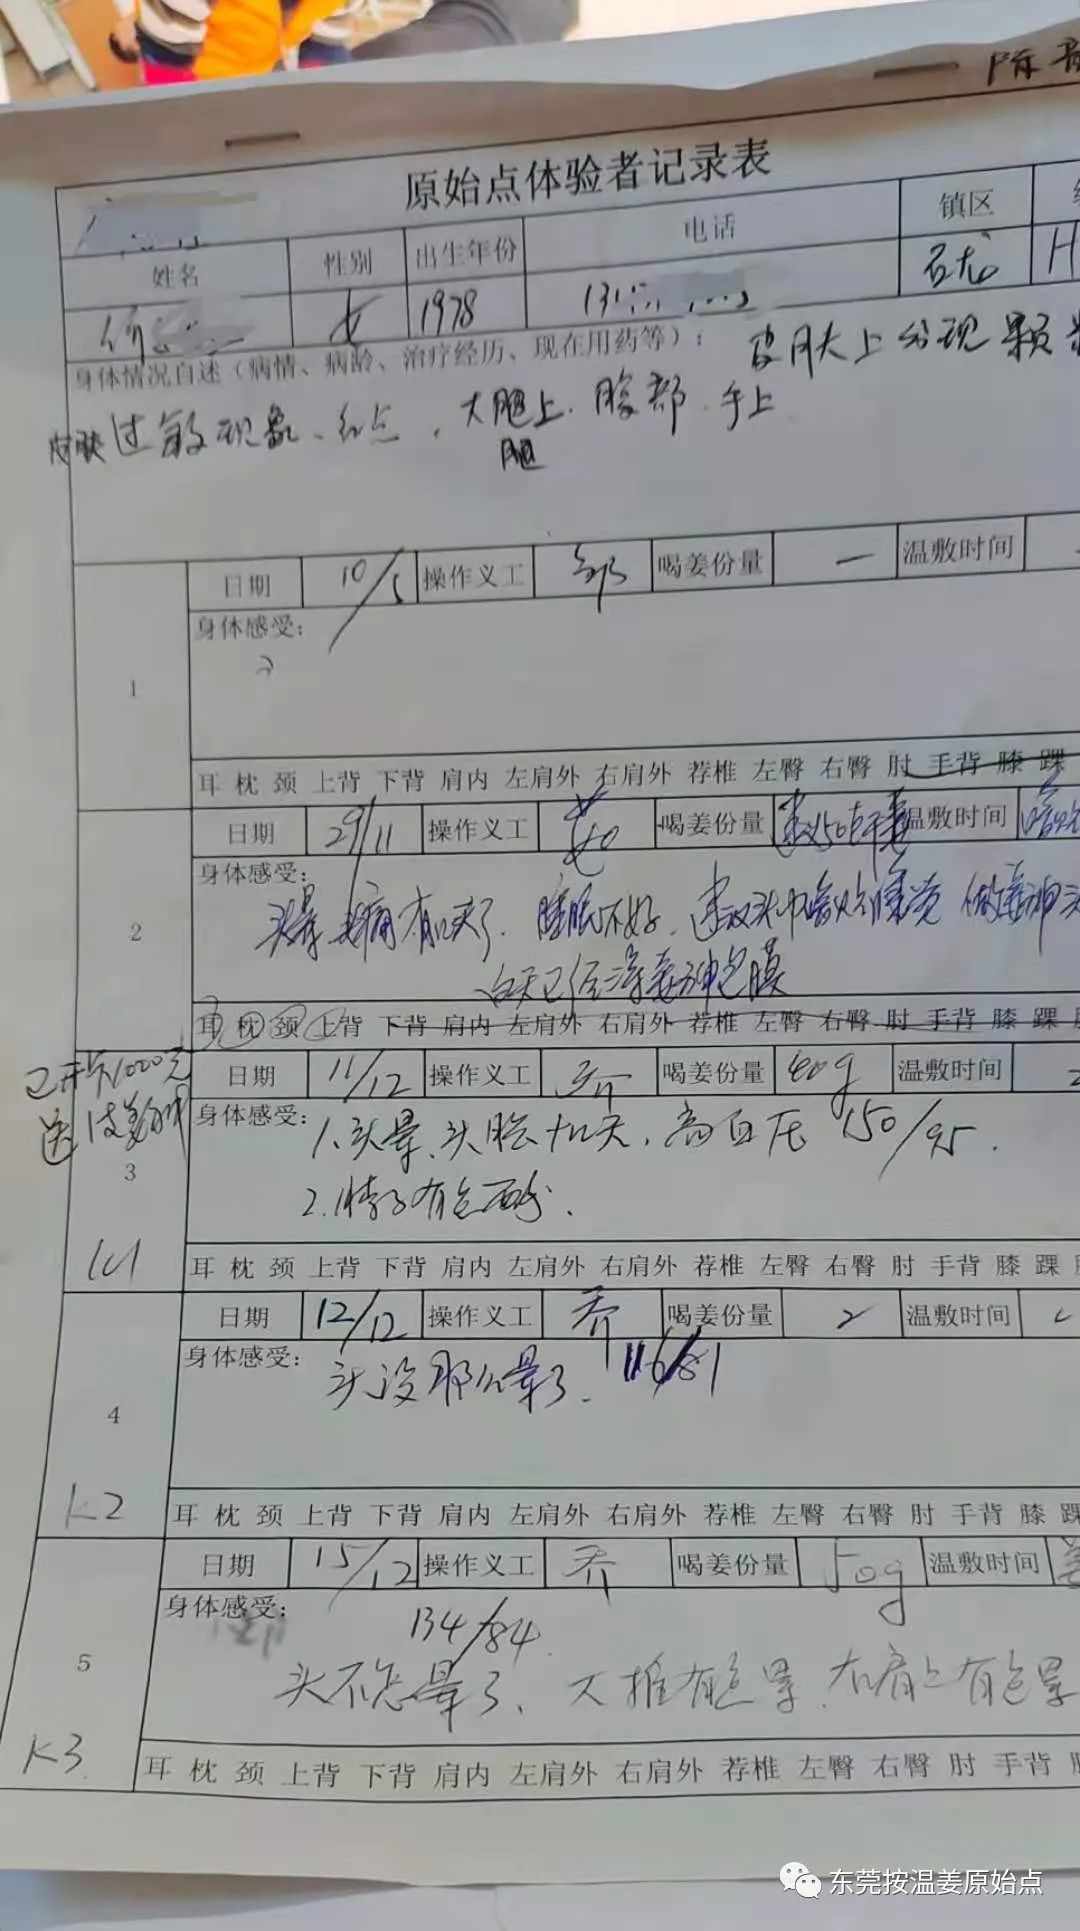 陈
原始点体验者记录表
姓名 性别 出生年份 电话 镇区
女 1978 131 石龙 H
身体情况自述（病情、病龄、治疗经历、现在用药等）： 皮肤上分现颗
皮肤过敏现象、红点，大腿上．腹部．手上
腿
1 日期 10/5 操作义工 喝姜份量 一 温敷时间
身体感受：
耳 枕 颈 上背 下背 肩内 左肩外 右肩外 荐椎 左臀 右臀 肘 手背 膝 踝
2 日期 29/11 操作义工 喝姜份量 温敷时间
身体感受：
头晕 头痛有几天了．睡眠不好．建议头巾
白天已
耳 枕 颈 上背 下背 肩内 左肩外 右肩外 荐椎 左臀 右臀 肘 手背 膝 踝
已开卡1000元
送
3 日期 11/12 操作义工 乔 喝姜份量 40g 温敷时间
身体感受：
1、头晕、头胀十几天，高血压 150/95．
2.脖子有点
K1 耳 枕 颈 上背 下背 肩内 左肩外 右肩外 荐椎 左臀 右臀 肘 手背 膝 踝
4 日期 12/12 操作义工 乔 喝姜份量 2 温敷时间
身体感受：
头没那么晕了． 116/81
K2 耳 枕 颈 上背 下背 肩内 左肩外 右肩外 荐椎 左臀 右臀 肘 手背 膝 踝
5 日期 15/12 操作义工 乔 喝姜份量 50g 温敷时间 姜
身体感受：
134/84
头不怎晕了、大椎有点累．右肩上有点累
K3 耳 枕 颈 上背 下背 肩内 左肩外 右肩外 荐椎 左臀 右臀 肘 手背
东莞按温姜原始点